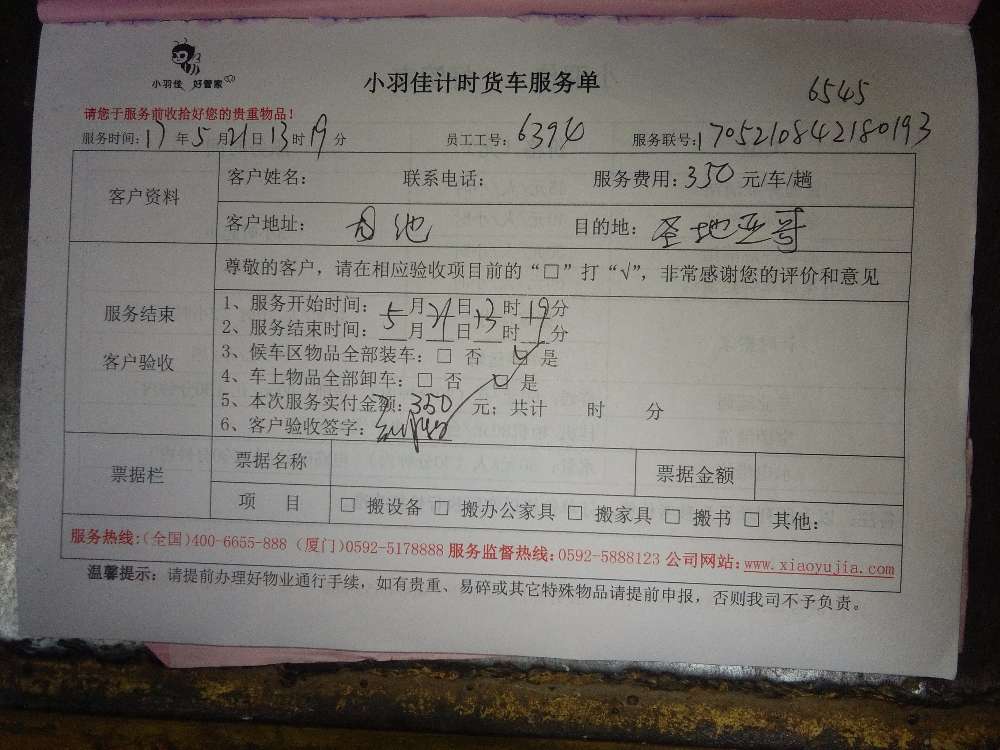 小羽佳 好管家
小羽佳计时货车服务单
6545
请您于服务前收拾好您的贵重物品！
服务时间：17年5月21日13时19分 员工工号：6394 服务联号：1705210842180193
客户资料
客户姓名： 联系电话： 服务费用：350元/车/趟
客户地址：池 目的地：圣地亚哥
服务结束
客户验收
尊敬的客户，请在相应验收项目前的“□”打“√”，非常感谢您的评价和意见
1、服务开始时间：5月21日13时19分
2、服务结束时间：5月21日13时19分
3、候车区物品全部装车：□ 否 □ 是
4、车上物品全部卸车：□ 否 □ 是
5、本次服务实付金额：350 元；共计 时 分
6、客户验收签字：
票据栏
票据名称 票据金额
项 目 □ 搬设备 □ 搬办公家具 □ 搬家具 □ 搬书 □ 其他：
服务热线：(全国)400-6655-888 (厦门)0592-5178888 服务监督热线：0592-5888123 公司网站：www.xiaoyujia.com
温馨提示：请提前办理好物业通行手续，如有贵重、易碎或其它特殊物品请提前申报，否则我司不予负责。